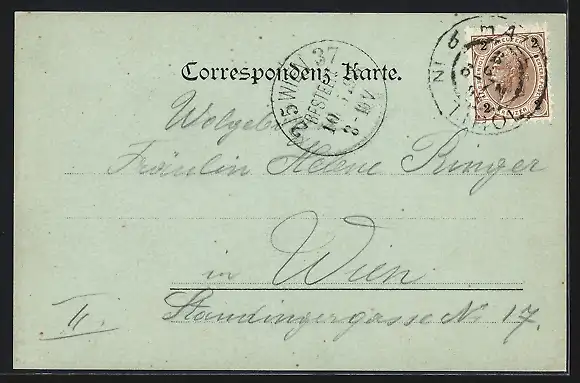 Correspondenz-Karte.
2/5 WIEN 37
BESTELLT
10
8-10V
2 2
2 2
Wolgeboren
Fräulein Helene Ringer
in Wien
II.
Staudingergasse Nr 17.